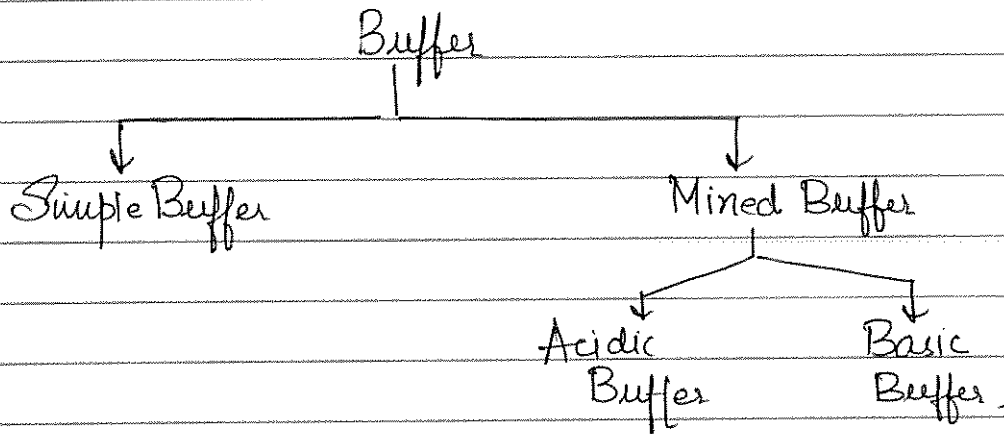 Buffer
Simple Buffer
Mixed Buffer
Acidic
Buffer
Basic
Buffer.